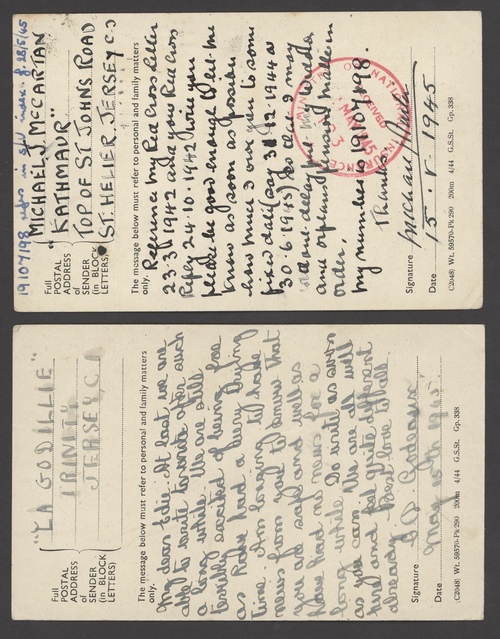 19107198 refers in s/w index. J. 28/5/45
Full
POSTAL
ADDRESS
of
SENDER
(in BLOCK
LETTERS)
MICHAEL J. McCARTAN
"KATHMAUR"
TOP OF ST JOHNS ROAD
ST. HELIER, JERSEY C I
The message below must refer to personal and family matters
only.
Reference my Red Cross letter
23.3.1942 and your Red Cross
Reply 24.10.1942 Will you
please be good enough to let me
know as soon as possible
how much I owe you to some
fixed date (say 31.12.1944 or
30.6.1945) so that I may
without delay
and
order.
my number is 19107198.
Thanks.
MINISTRY OF NATIONAL INSURANCE
RECEIVED
Signature
Date
15. V. 1945
C(2048) Wt. 59570-Pk290 200m 4/44 G.S.St. Gp.338
Full
POSTAL
ADDRESS
of
SENDER
(in BLOCK
LETTERS)
"LA GODILLIE"
TRINITY
JERSEY, C.I
The message below must refer to personal and family matters
only.
My dear Edie. At last we are
able to write to - after such
a long while. We are still
terribly excited of being free
as have had a very trying
time. Am longing to have
news from you to know that
you are safe and well as
have had no news for a
long while. Do write as soon
as you can. We are all well
here and feel quite different
already. Best love to all.
Signature
Date May 15th 1945
C(2048) Wt. 59570-Pk290 200m 4/44 G.S.St. Gp.338